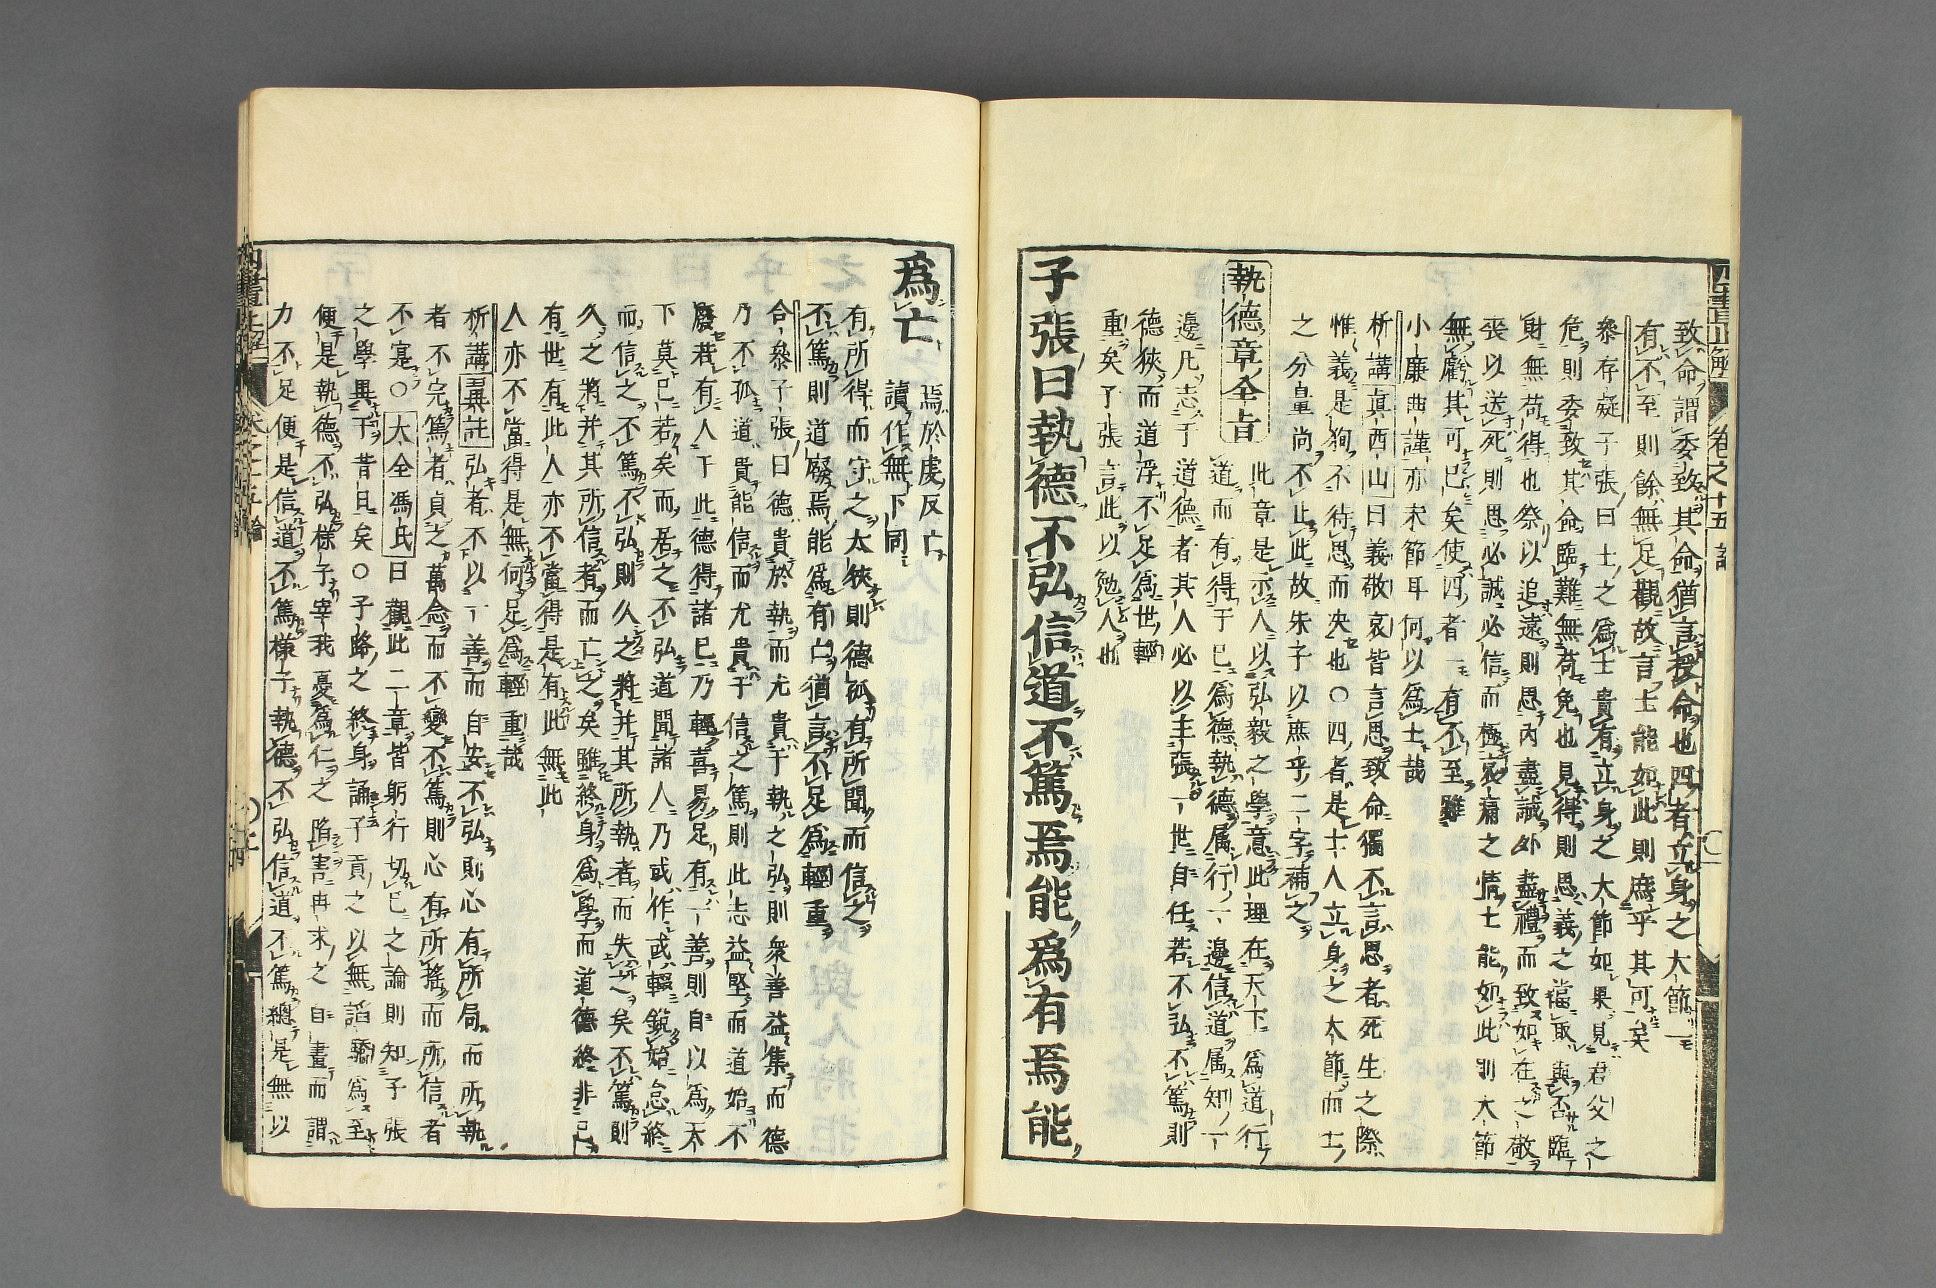 致命謂委致其命猶言授命也四者立身之大節一
有不至則餘無足觀故言士能如此則庶乎其可矣
參存疑子張曰士之爲士貴有立身之大節如果見君父之
危則委致其命臨難無苟免也見得則思義之當取與否臨
財無苟得也祭以追遠則思内盡誠外盡禮而致如在之敬
喪以送死則思必誠必信而極哀痛之情士能如此則大節
無虧其可已矣使四者一有不至雖
小廉曲謹亦末節耳何以爲士哉
析講眞西山曰義敬哀皆言思致命獨不言思者死生之際
惟義是狥不待思而决也〇四者是士人立身之大節而士
之分量尚不止此故朱子以庶乎二字補之
執德章全旨 此章是示人以弘毅之學意此理在天下爲道行
道而有得于己爲德執德属行一邊信道属知一
邊凡志于道德者其人必以主張一世自任若不弘不篤則
德狹而道浮不足爲世輕
重矣子張言此以勉人也
子張曰執德不弘信道不篤焉能爲有焉能
爲亡 焉於虔反亡
讀作無下同
有所得而守之太狹則德孤有所聞而信之
不篤則道廢焉能爲有亡猶言不足爲輕重
合參子張曰德貴於執而尤貴于執之弘則衆善益集而德
乃不孤道貴能信而尤貴于信之篤則此志益堅而道始不
廢若有人于此德得諸己乃輕喜易足有一善則自以爲天
下莫己若矣而居之不弘道聞諸人乃或作或輟銳始怠終
而信之不篤不弘則久之將并其所執者而失之矣不篤則
久之將并其所信者而亡之矣雖終身爲學而道德終非己
有世有此人亦不當得是有此無此
人亦不當得是無何足爲輕重哉
析講異註弘者不以一善而自安不弘則心有所局而所執
者不完篤者貞之萬念而不變不篤則心有所搖而所信者
不寔〇大全馮氏曰觀此二章皆躬行切己之論則知子張
之學異于昔日矣〇子路之終身誦子貢之以無諂驕爲至
便是執德不弘樣子宰我憂爲仁之陷害冉求之自畫而謂
力不足便是信道不篤樣子執德不弘信道不篤總是無以